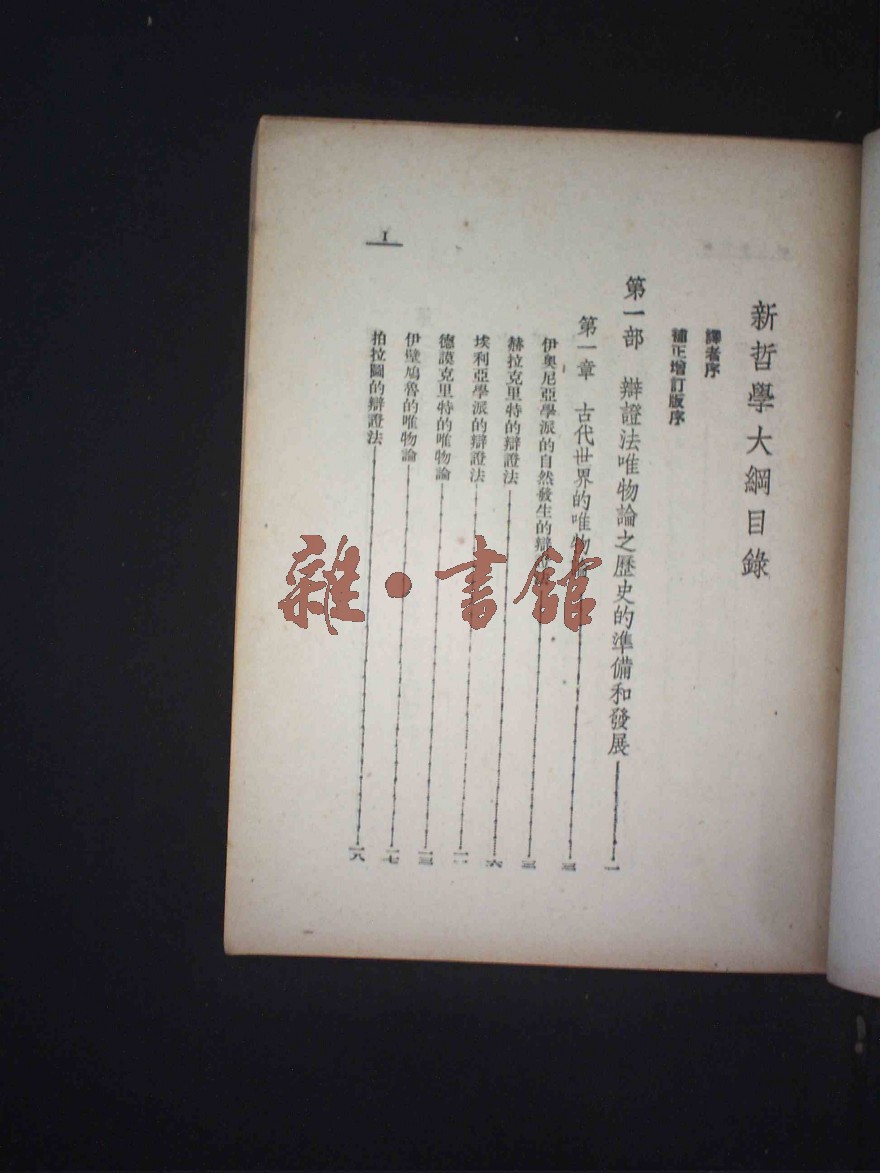 新哲學大綱目錄
譯者序
補正增訂版序
第一部 辯證法唯物論之歷史的準備和發展 一
第一章 古代世界的唯物 三
伊奧尼亞學派的自然發生的辯 三
赫拉克里特的辯證法 六
埃利亞學派的辯證法
德謨克里特的唯物論 一三
伊壁鳩魯的唯物論 一七
拍拉圖的辯證法 一八
I
雜·書館